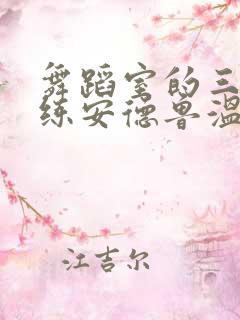 舞蹈室的三
练安德鲁温
江吉尔